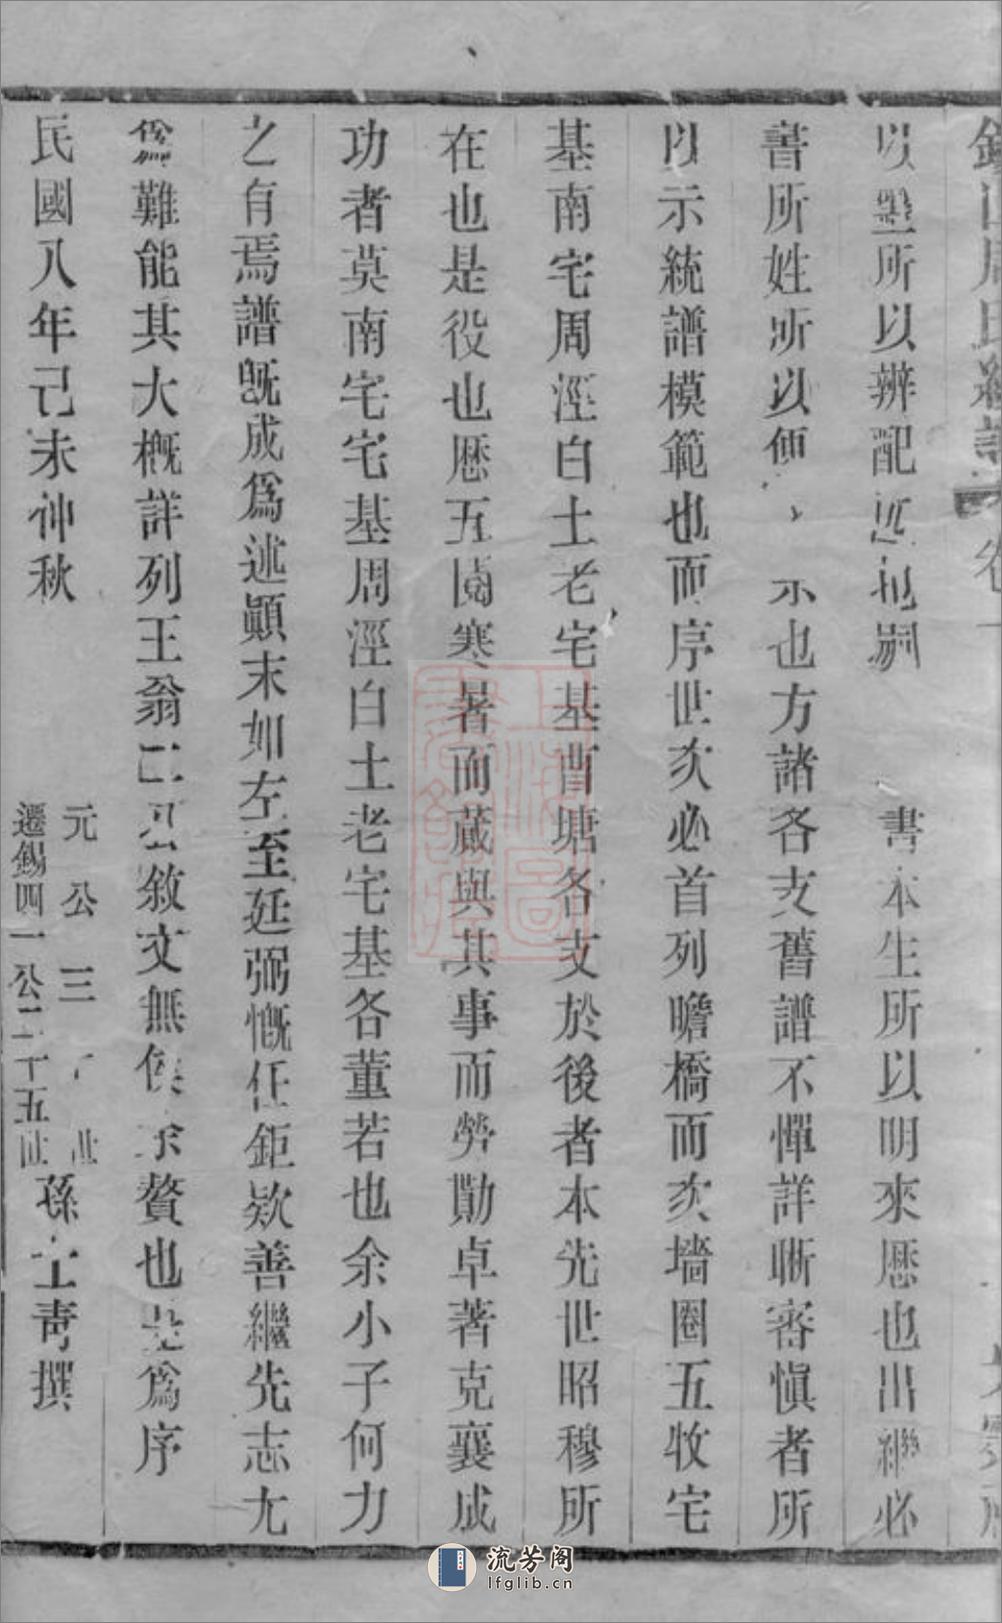 錫山周氏統譜 卷一
以墨所以辨配 書本生所以明來歷也出繼必
書所姓所以便 示也方諸各支舊譜不憚詳晰審愼者所
以示統譜模範也而序世次必首列瞻橋而次墻圈五牧宅
基南宅周涇白土老宅基曹塘各支於後者本先世昭穆所
在也是役也歷五閱寒暑而蕆與其事而勞勩卓著克襄成
功者莫南宅宅基周涇白土老宅基各董若也余小子何力
之有焉譜既成爲述顚末如左至廷弼慨任鉅欵善繼先志尤
爲難能其大概詳列王翁 敘文無俟余贅也是爲序
民國八年己未仲秋
元公三 世
遷錫四一公二十五世 孫士靑撰
流芳阁
lfglib.cn